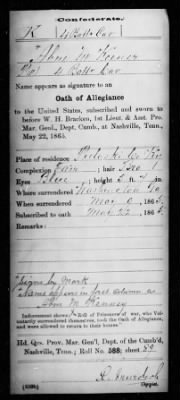 Confederate.
K | 4 Batt. Cav
Abm M Keener
4 Batt Cav
Name appears as signature to an
Oath of Allegiance
to the United States, subscribed and sworn to
before W. H. Bracken, 1st Lieut. & Asst. Pro.
Mar. Genl., Dept. Cumb., at Nashville, Tenn.,
May 22, 1865.
Place of residence
Complexion Fair, hair
Eyes Blue; height 5 ft. in.
Where surrendered Washington Ga
When surrendered May 1865.
Subscribed to oath May 22 1865
Remarks:
Signs by mark
Name appears in first column as
Abm M
Indorsement shows: "Roll of Prisoners of war, who Vol-
untarily surrendered themselves, took the Oath of Allegiance,
and were allowed to return to their homes."
Hd. Qrs. Prov. Mar. Gen'l. Dept. of the Cumb'd,
Nashville, Tenn.; Roll No. 588; sheet
Copyist.